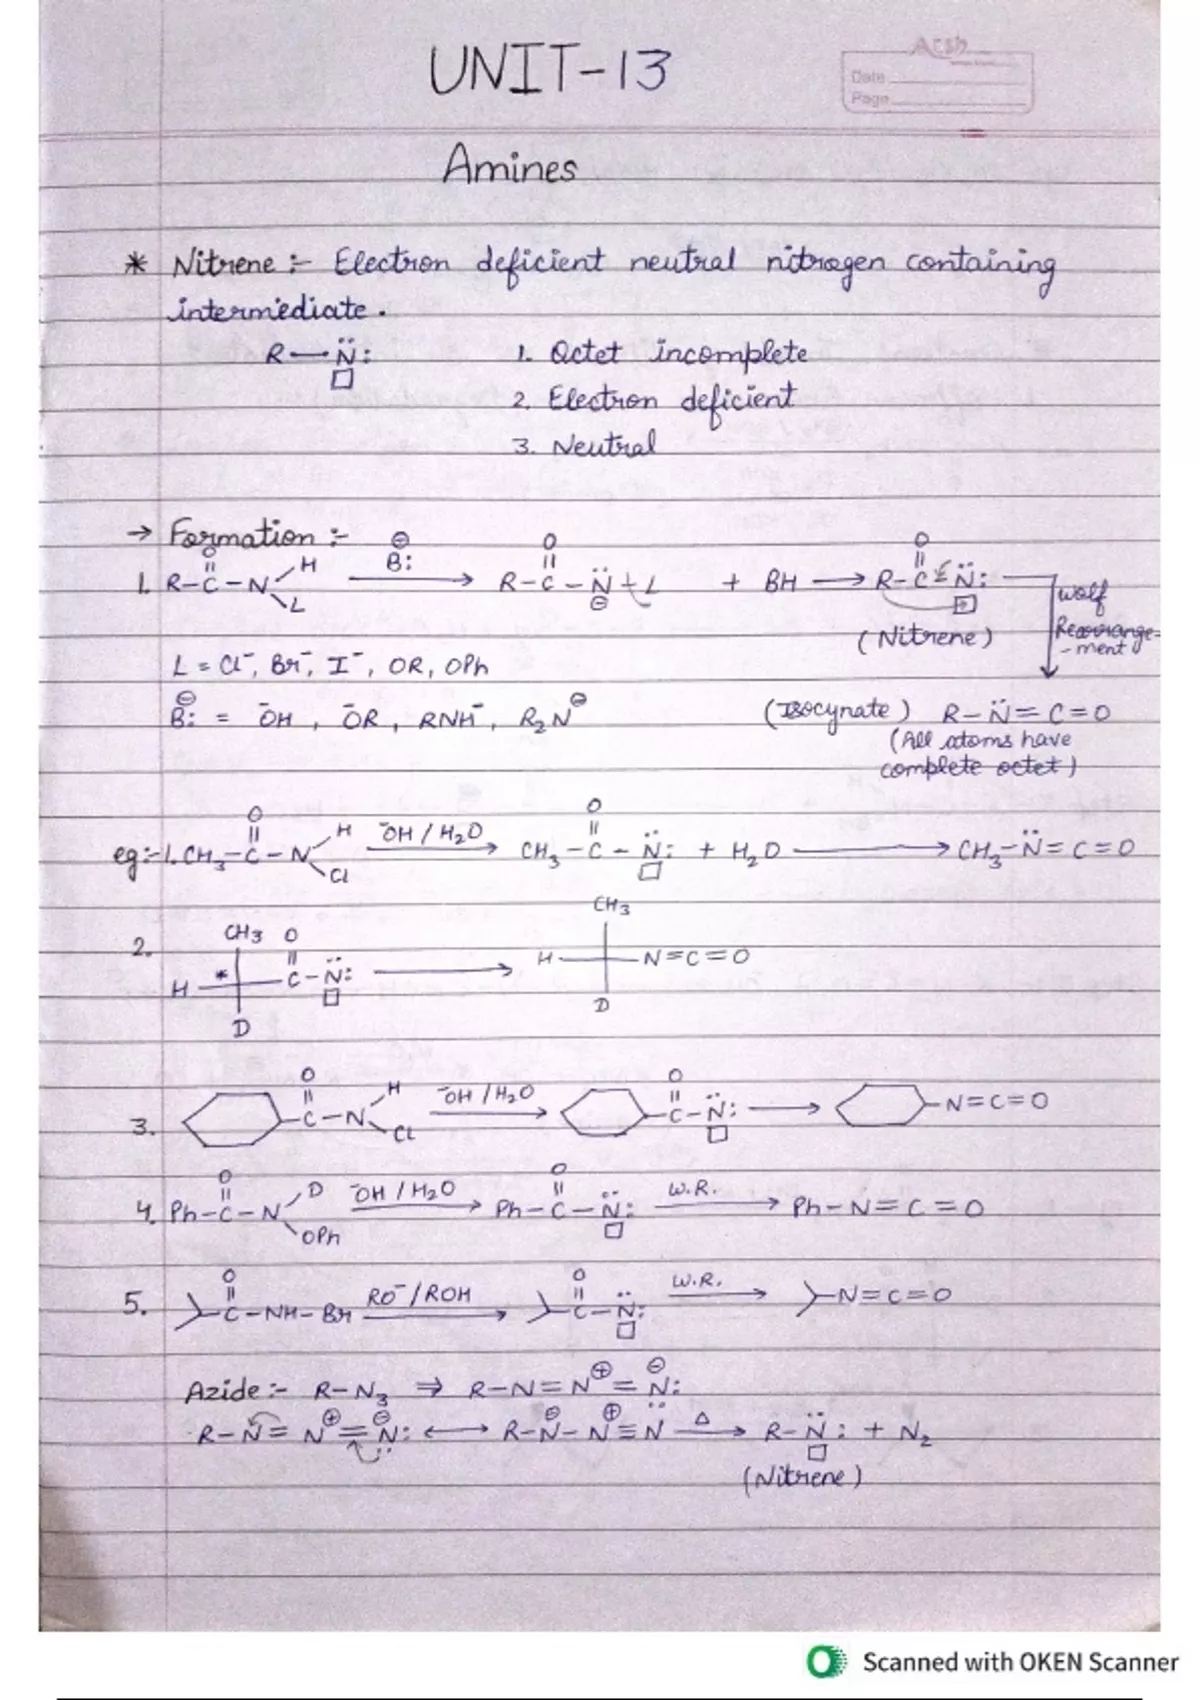 Arsh
Date
Page
UNIT-13
Amines
* Nitrene :- Electron deficient neutral nitrogen containing
intermediate.
R—N̈: 1. Octet incomplete
2. Electron deficient
3. Neutral
→ Formation :-
1. R-C(=O)-N(H)(L) —B:⊖→ R-C(=O)-N̈⊖-L + BH → R-C(=O)-N̈:
(Nitrene) wolf
Rearrange-
-ment
L = Cl⁻, Br⁻, I⁻, OR, OPh
B:⊖ = ŌH, ŌR, RNH⁻, R₂N⊖ (Isocynate) R-N̈=C=O
(All atoms have
complete octet)
eg:-1. CH₃-C(=O)-N(H)(Cl) —⁻OH/H₂O→ CH₃-C(=O)-N̈: + H₂O → CH₃-N̈=C=O
2. CH₃ H * D C(=O)-N̈: → CH₃ H D N=C=O
3. C(=O)-N(H)(Cl) —⁻OH/H₂O→ C(=O)-N̈: → N=C=O
4. Ph-C(=O)-N(D)(OPh) —⁻OH/H₂O→ Ph-C(=O)-N̈: —W.R.→ Ph-N=C=O
5. C(=O)-NH-Br —RO⁻/ROH→ C(=O)-N̈: —W.R.→ N=C=O
Azide:- R-N₃ ⇒ R-N=N⊕=N̈:⊖
R-N̈=N⊕=N̈:⊖ ↔ R-N⊖-N⊕≡N —Δ→ R-N̈: + N₂
(Nitrene)
Scanned with OKEN Scanner